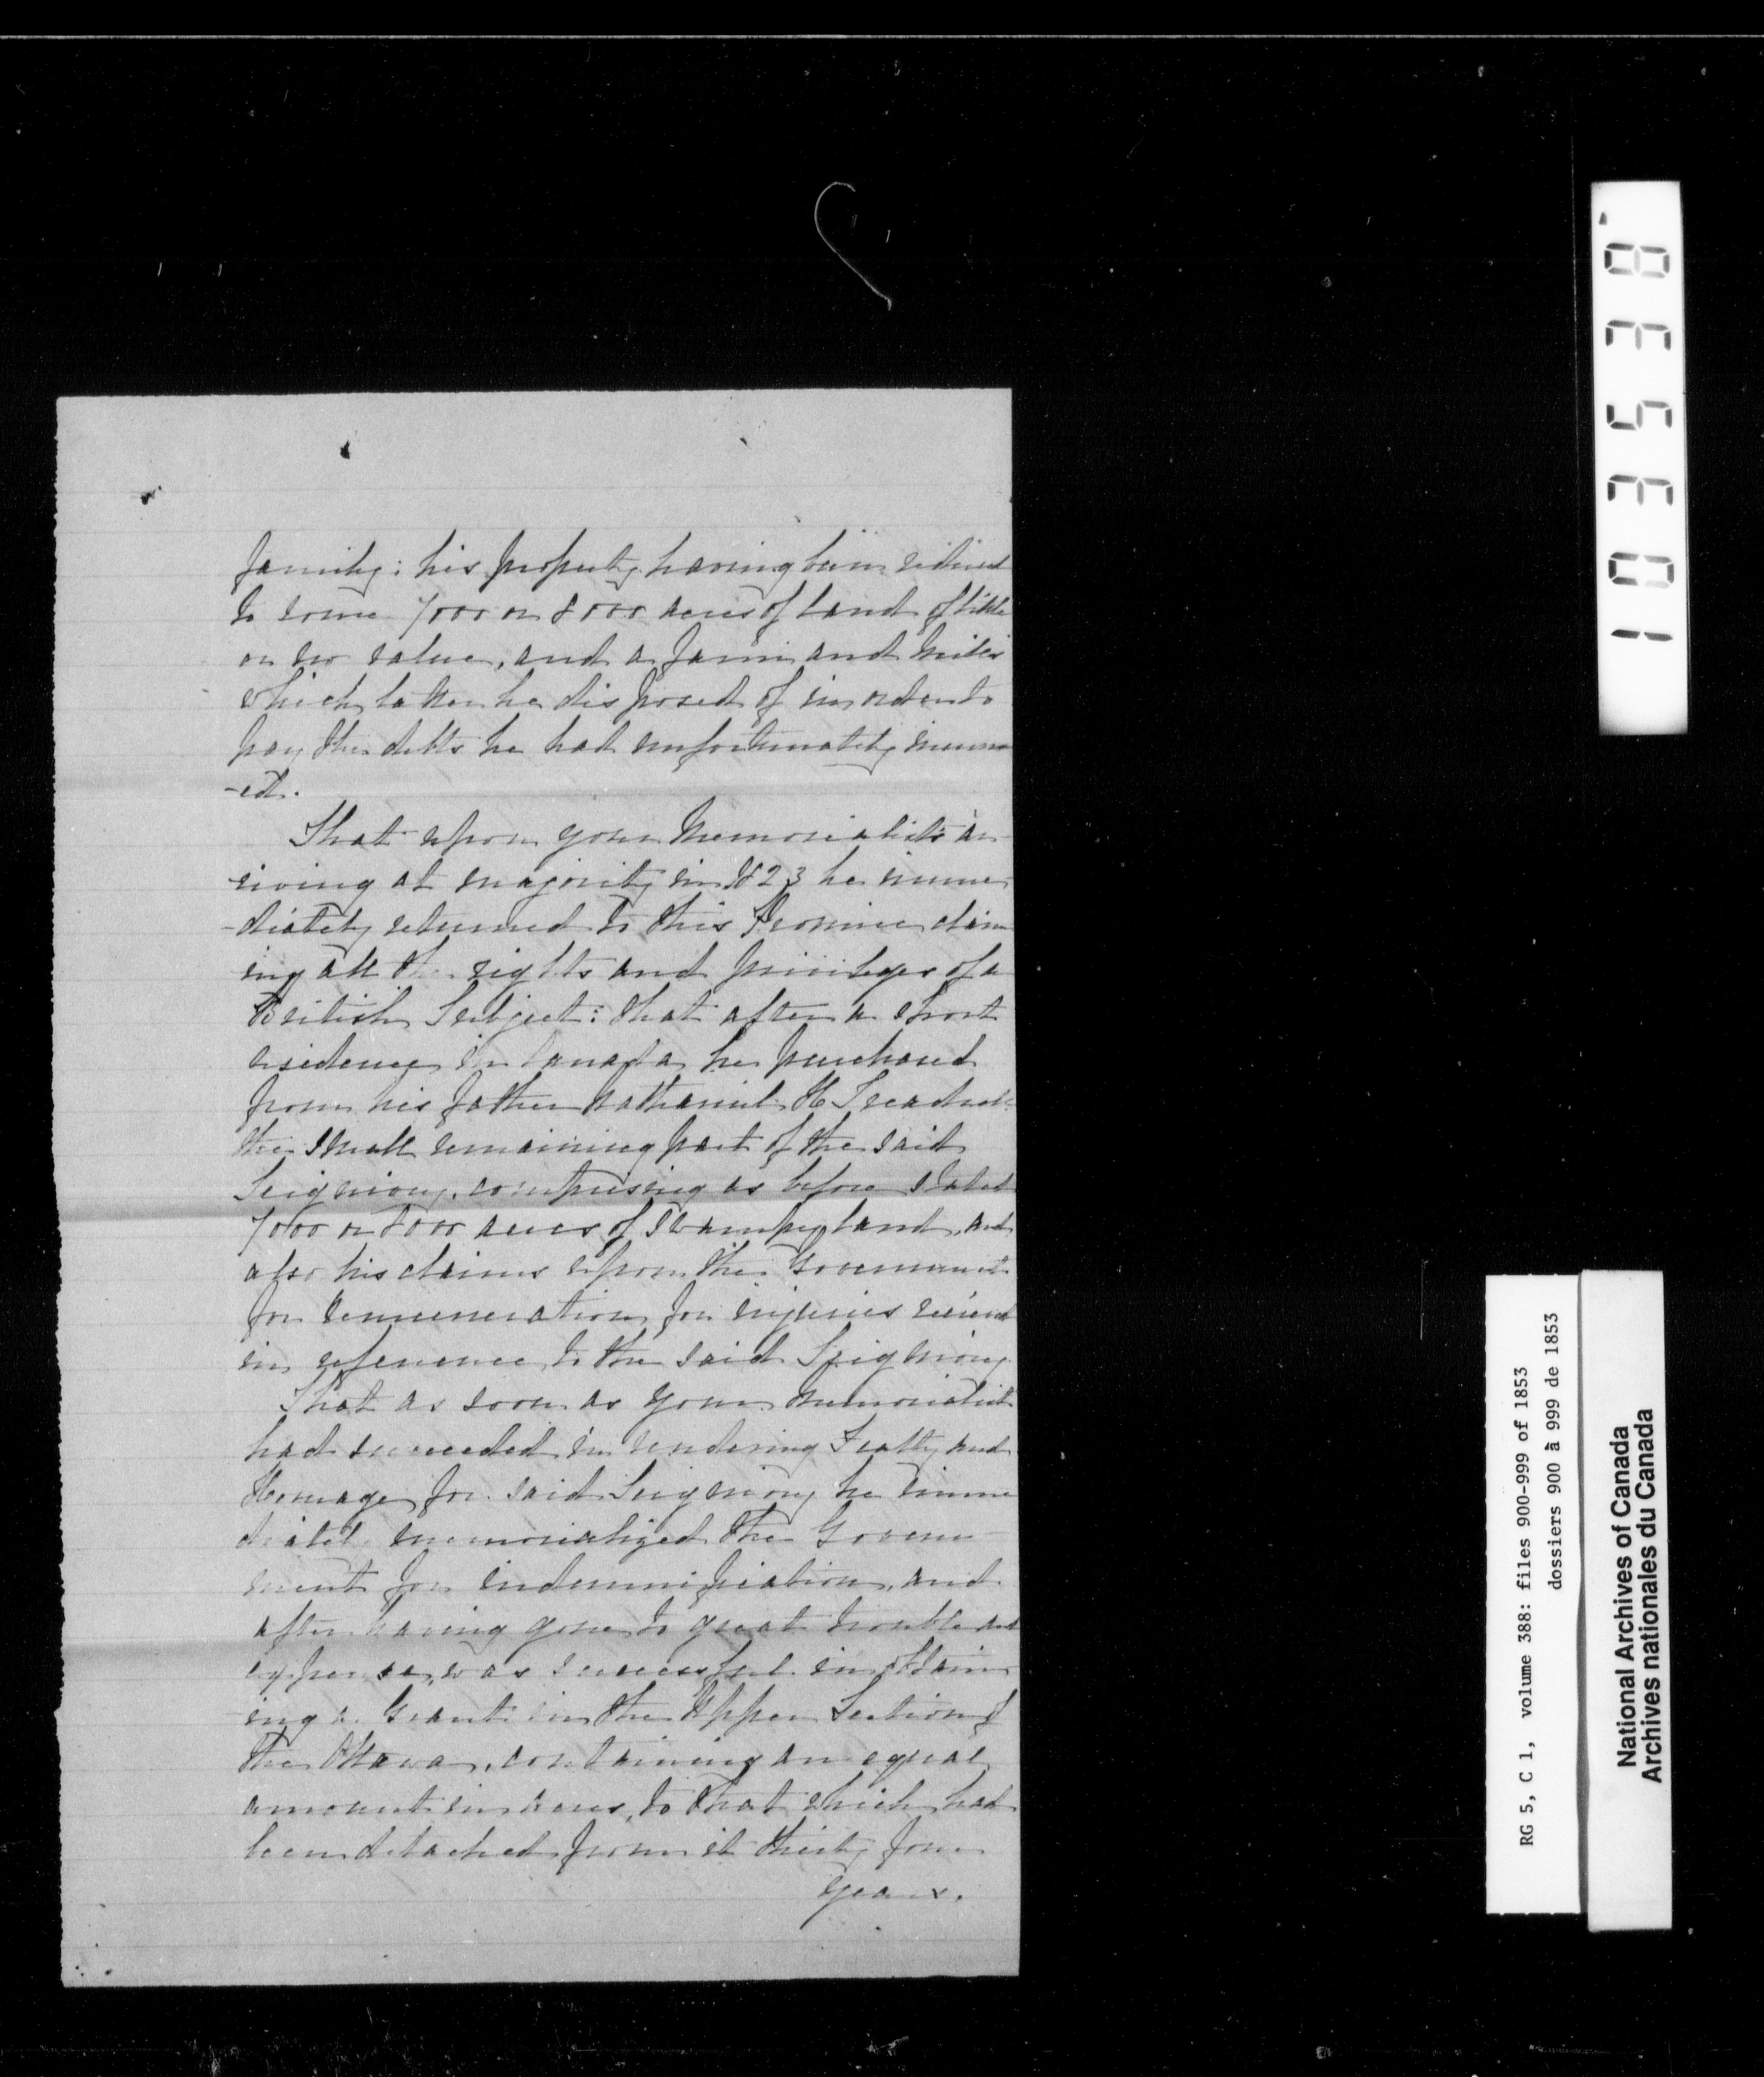 family: his property having been reduced
to some 7000 or 8000 acres of land of little
or no value, and a farm and mills
which latter he disposed of in order to
pay the debts he had unfortunately incurr
-ed.
That upon your Memorialist's ar-
riving at majority in 1823 he imme-
-diately returned to this Province claim
ing all the rights and privileges of a
British Subject: that after a short
residence in Canada he purchased
from his father Nathaniel H Treadwell
the small remaining part of the said
Seigniory, comprising as before stated
7000 or 8000 acres of swampy land, and
also his claims upon the Government
for remuneration for injuries received
in reference to the said Seigniory.
That as soon as your Memorialist
had succeeded in rendering Fealty and
Homage for said Seigniory he imme
diately memorialized the Govern-
ment for indemnification, and
after having gone to great trouble and
expense, was successful in obtain
ing a Grant in the Upper Section of
the Ottawa, containing an equal
amount in acres, to that which had
been detached from it thirty four
years.
103538
RG 5, C 1, volume 388: files 900-999 of 1853
dossiers 900 à 999 de 1853
National Archives of Canada
Archives nationales du Canada